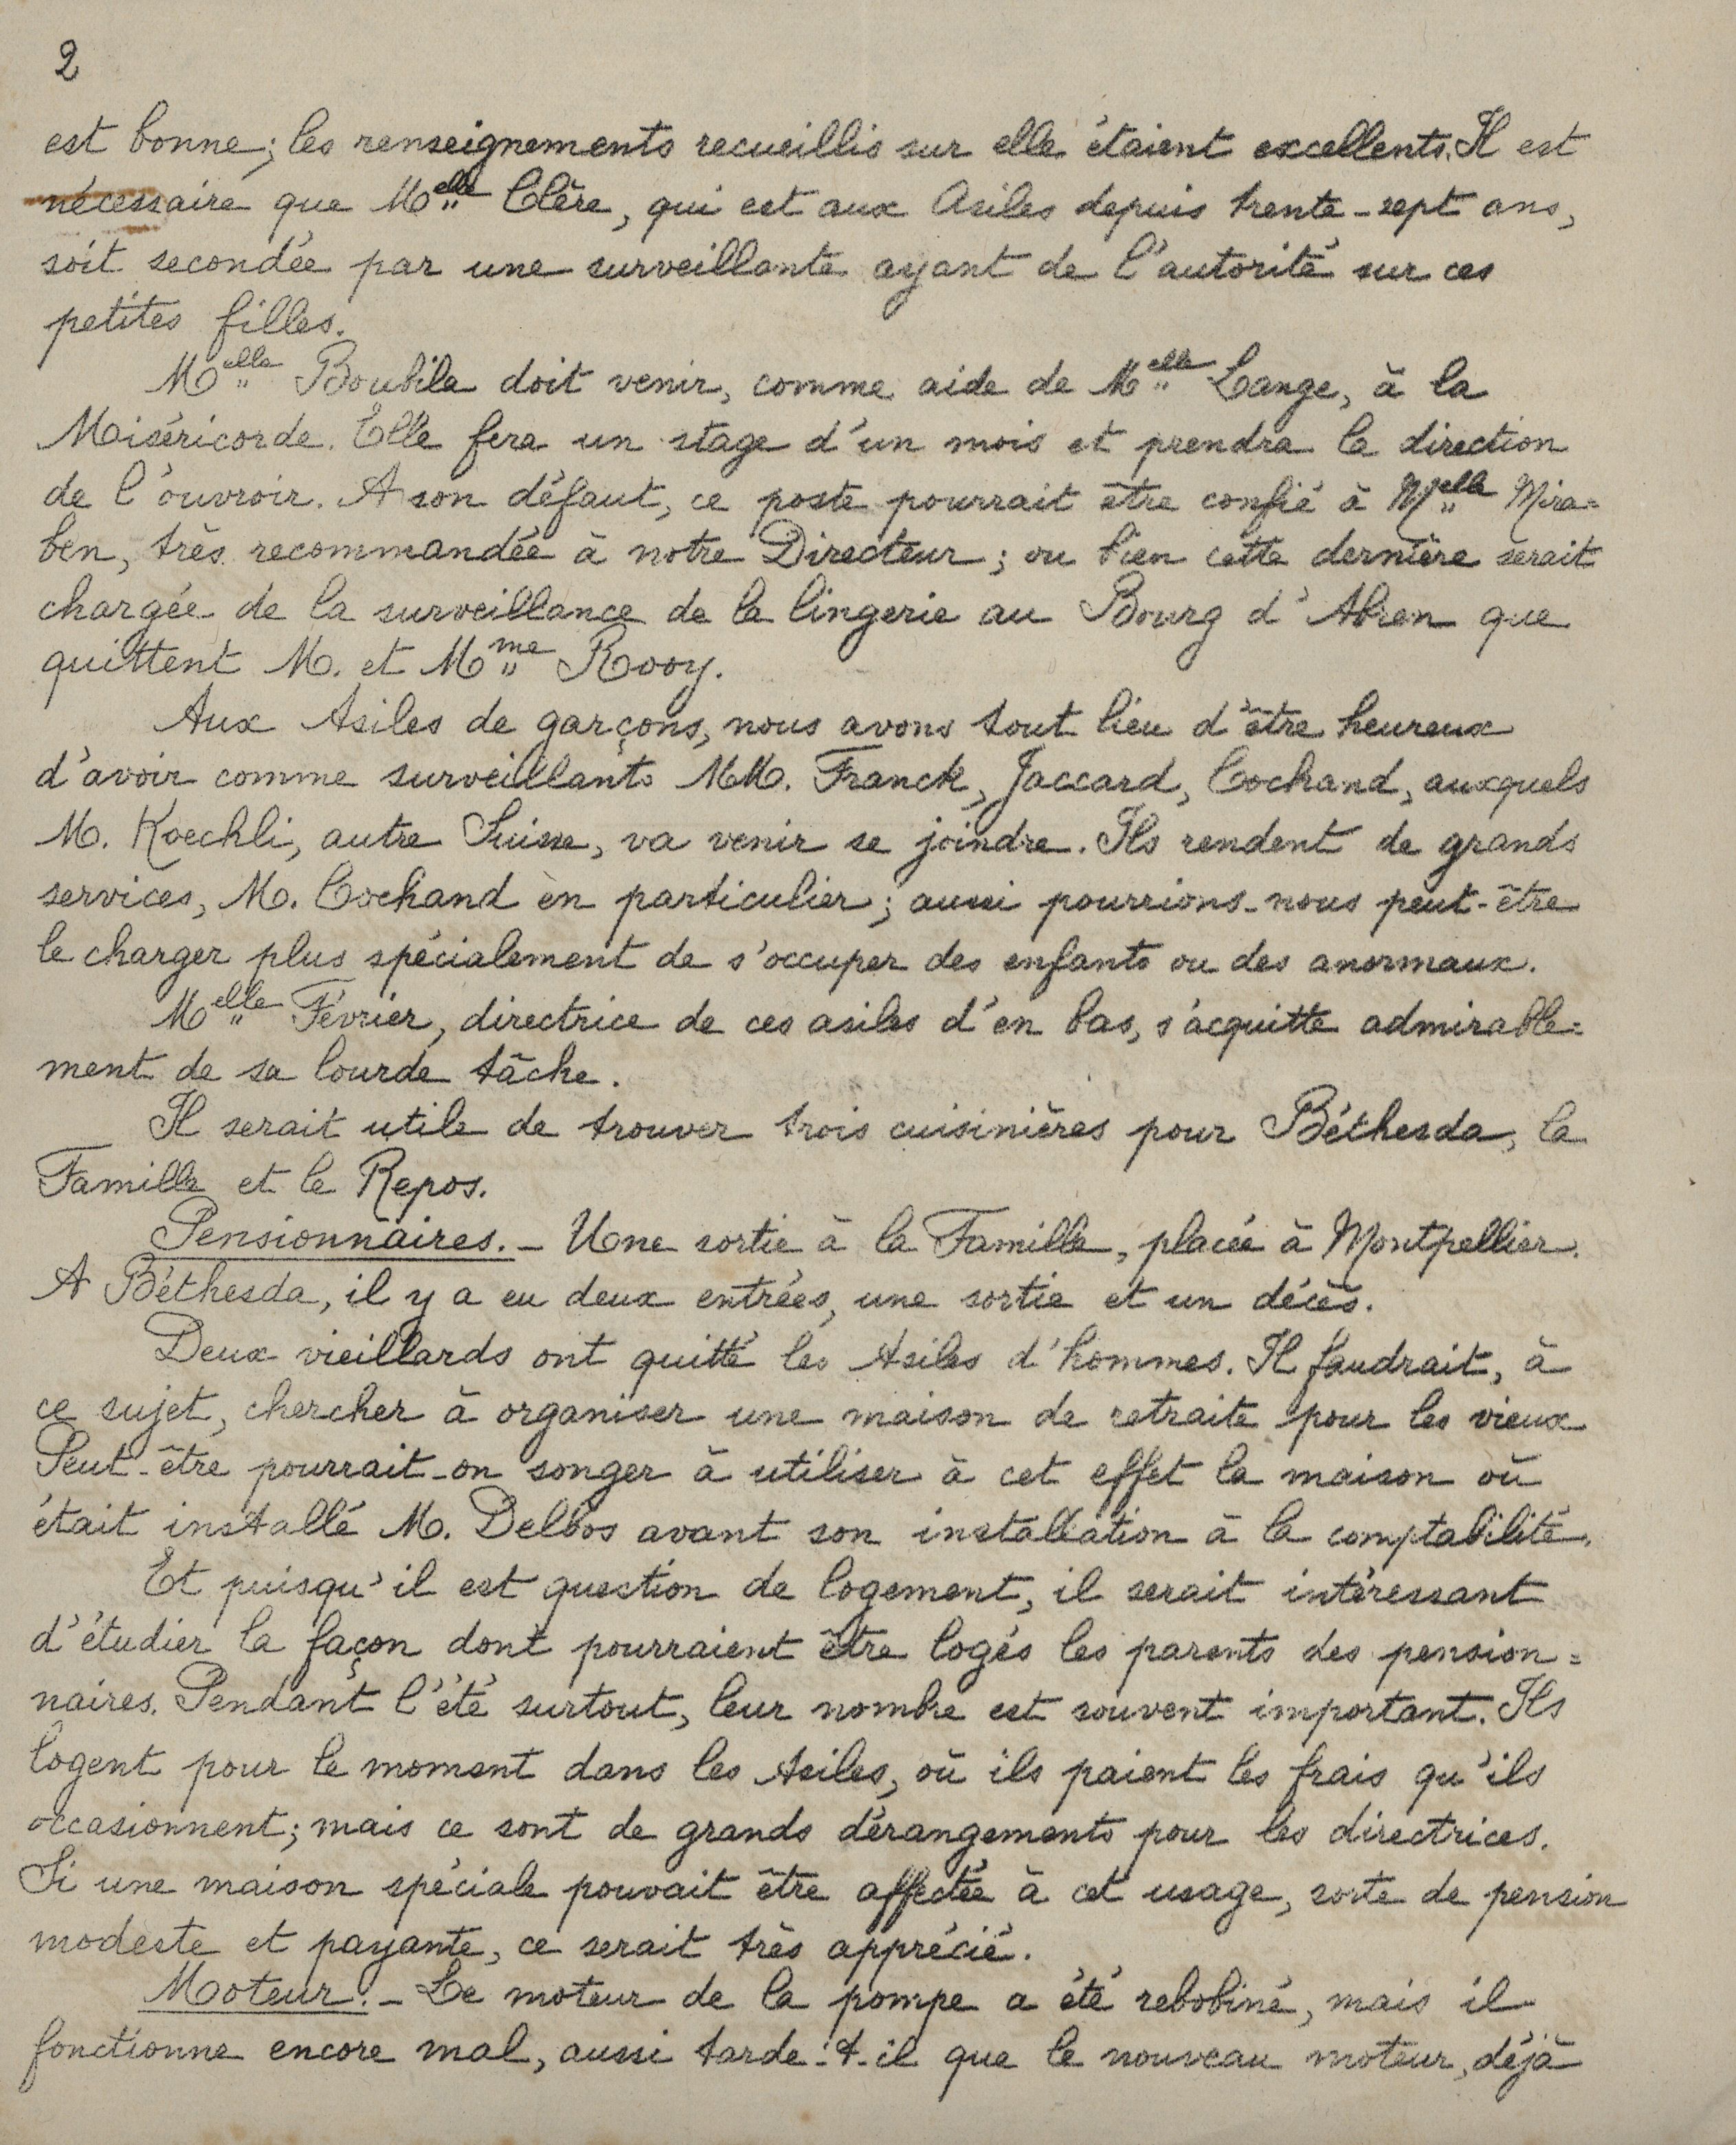 2
est bonne; les renseignements recueillis sur elle étaient excellents. Il est
nécessaire que Melle Clère, qui est aux Asiles depuis trente-sept ans,
soit secondée par une surveillante ayant de l'autorité sur ces
petites filles.
Melle Boubila doit venir, comme aide de Melle Lange, à la
Miséricorde. Elle fera un stage d'un mois et prendra la direction
de l'ouvroir. A son défaut, ce poste pourrait être confié à Melle Mira=
ben, très recommandée à notre Directeur; ou bien cette dernière serait
chargée de la surveillance de la lingerie au Bourg d'Abren que
quittent M. et Mme Rooy.
Aux Asiles de garçons, nous avons tout lieu d'être heureux
d'avoir comme surveillants MM. Franck, Jaccard, Cochand, auxquels
M. Koechli, autre Suisse, va venir se joindre. Ils rendent de grands
services, M. Cochand en particulier; aussi pourrions-nous peut-être
le charger plus spécialement de s'occuper des enfants ou des anormaux.
Melle Février, directrice de ces asiles d'en bas, s'acquitte admirable=
ment de sa lourde tâche.
Il serait utile de trouver trois cuisinières pour Béthesda, la
Famille et le Repos.
Pensionnaires. - Une sortie à la Famille, placée à Montpellier.
A Béthesda, il y a eu deux entrées, une sortie et un décès.
Deux vieillards ont quitté les Asiles d'hommes. Il faudrait, à
ce sujet, chercher à organiser une maison de retraite pour les vieux
Peut-être pourrait-on songer à utiliser à cet effet la maison où
était installé M. Delbos avant son installation à la comptabilité.
Et puisqu'il est question de logement, il serait intéressant
d'étudier la façon dont pourraient être logés les parents des pension=
naires. Pendant l'été surtout, leur nombre est souvent important. Ils
logent pour le moment dans les Asiles, où ils paient les frais qu'ils
occasionnent; mais ce sont de grands dérangements pour les directrices.
Si une maison spéciale pouvait être affectée à cet usage, sorte de pension
modeste et payante, ce serait très apprécié.
Moteur. - Le moteur de la pompe a été rebobiné, mais il
fonctionne encore mal, aussi tarde-t-il que le nouveau moteur, déjà